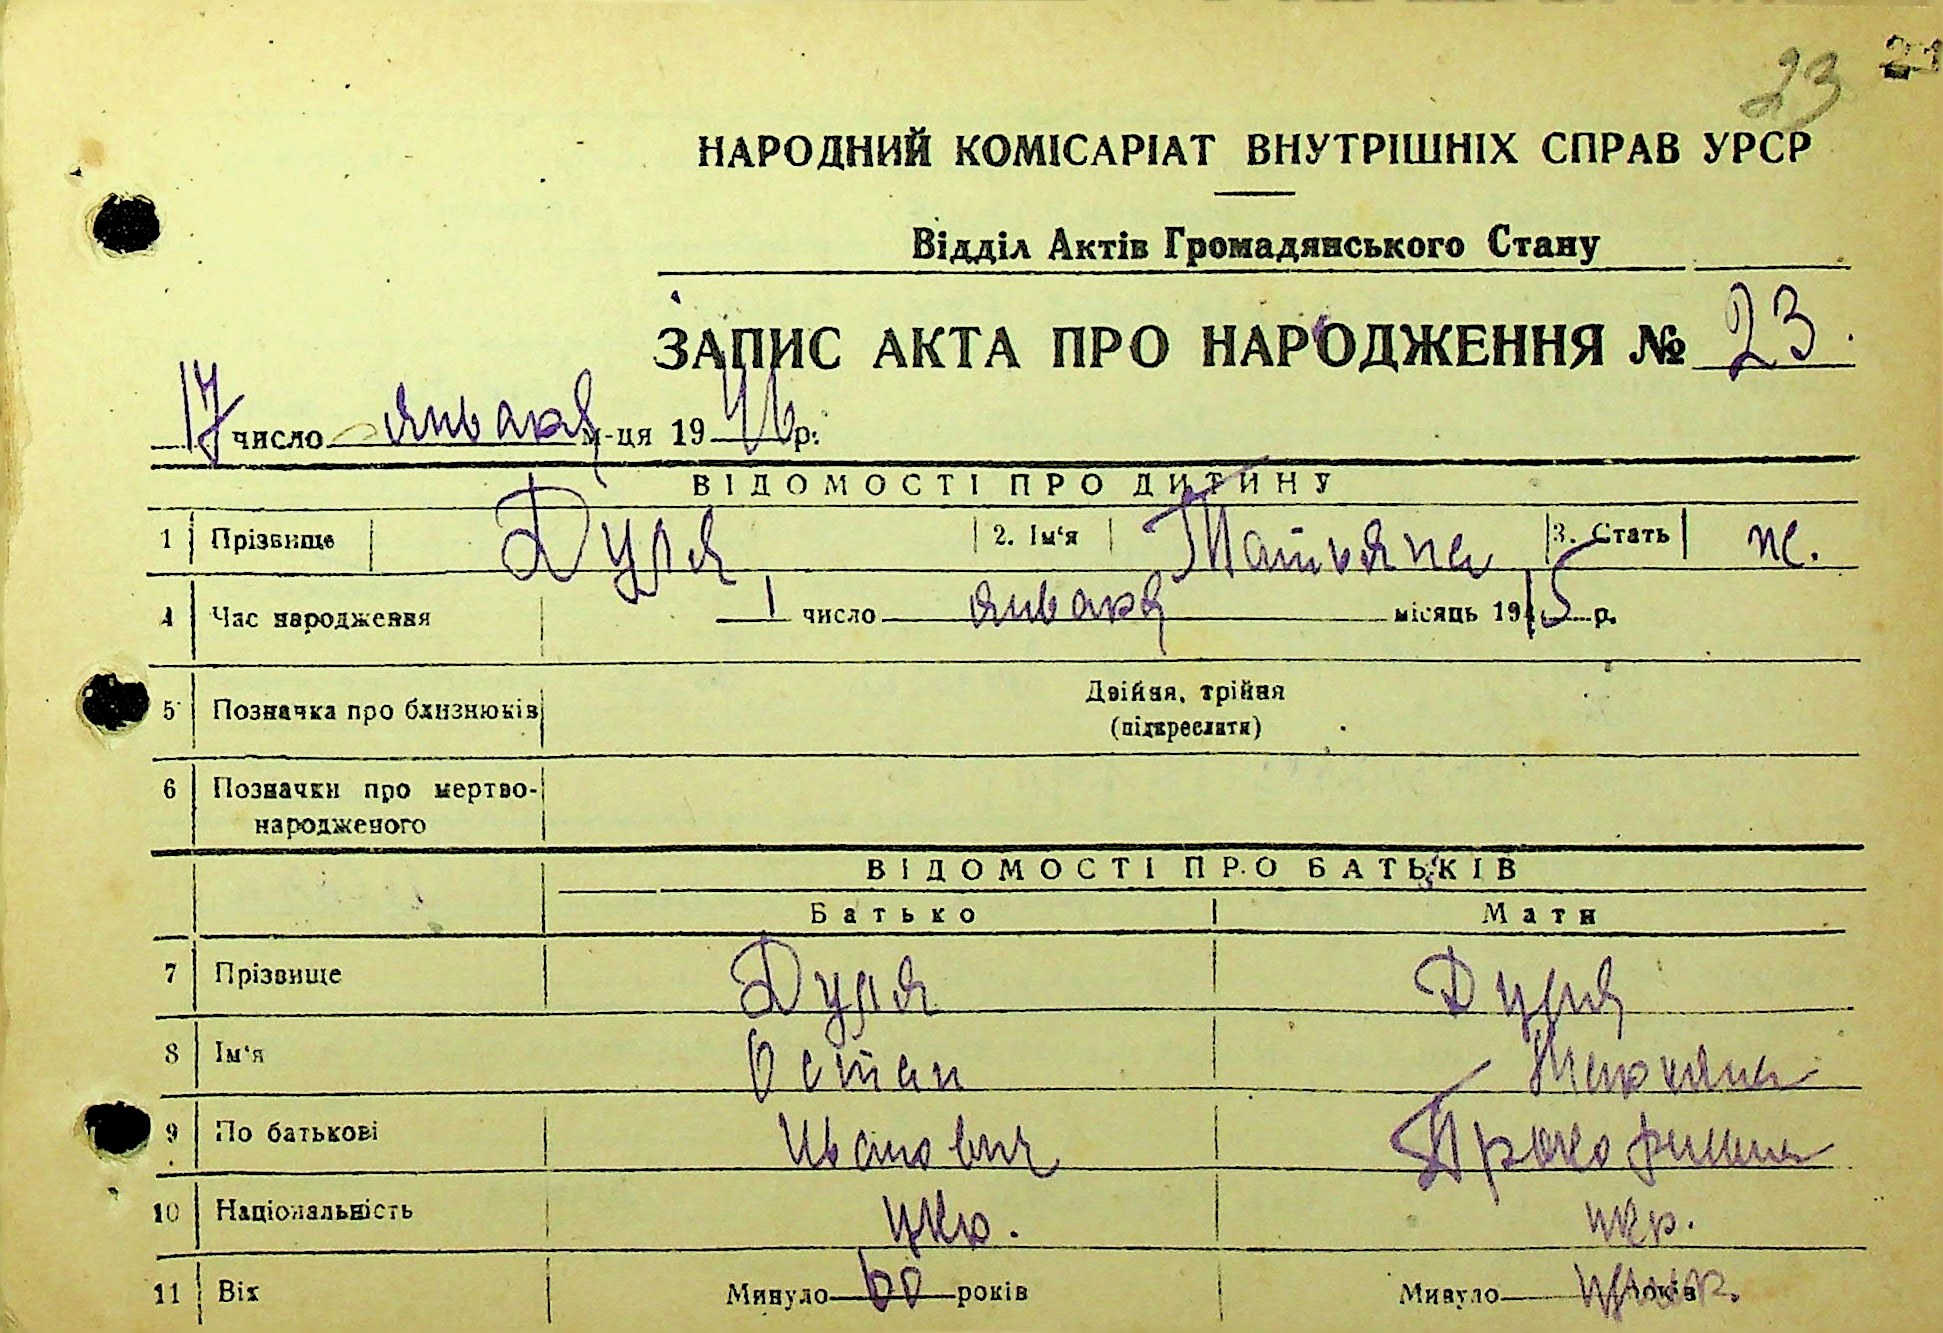 23
НАРОДНИЙ КОМІСАРІАТ ВНУТРІШНІХ СПРАВ УРСР
Відділ Актів Громадянського Стану
ЗАПИС АКТА ПРО НАРОДЖЕННЯ № 23
17 число января м-ця 1946 р.
ВІДОМОСТІ ПРО ДИТИНУ
1 Прізвище Дуля 2. Ім'я Татьяна 3. Стать ж.
4 Час народження 1 число января місяць 1915 р.
5 Позначка про близнюків Двійня, трійня
(підкреслити)
6 Позначки про мертво-
народженого
ВІДОМОСТІ ПРО БАТЬКІВ
Батько Мати
7 Прізвище Дуля Дуля
8 Ім'я Остап
9 По батькові Иванович
10 Національність укр. укр.
11 Вік Минуло 60 років Минуло років